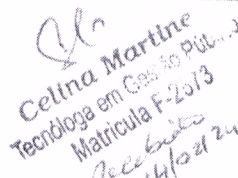 Celina Martine
Tecnóloga em Gestão Púb
Matrícula F-2013
Recebido
14/02/24